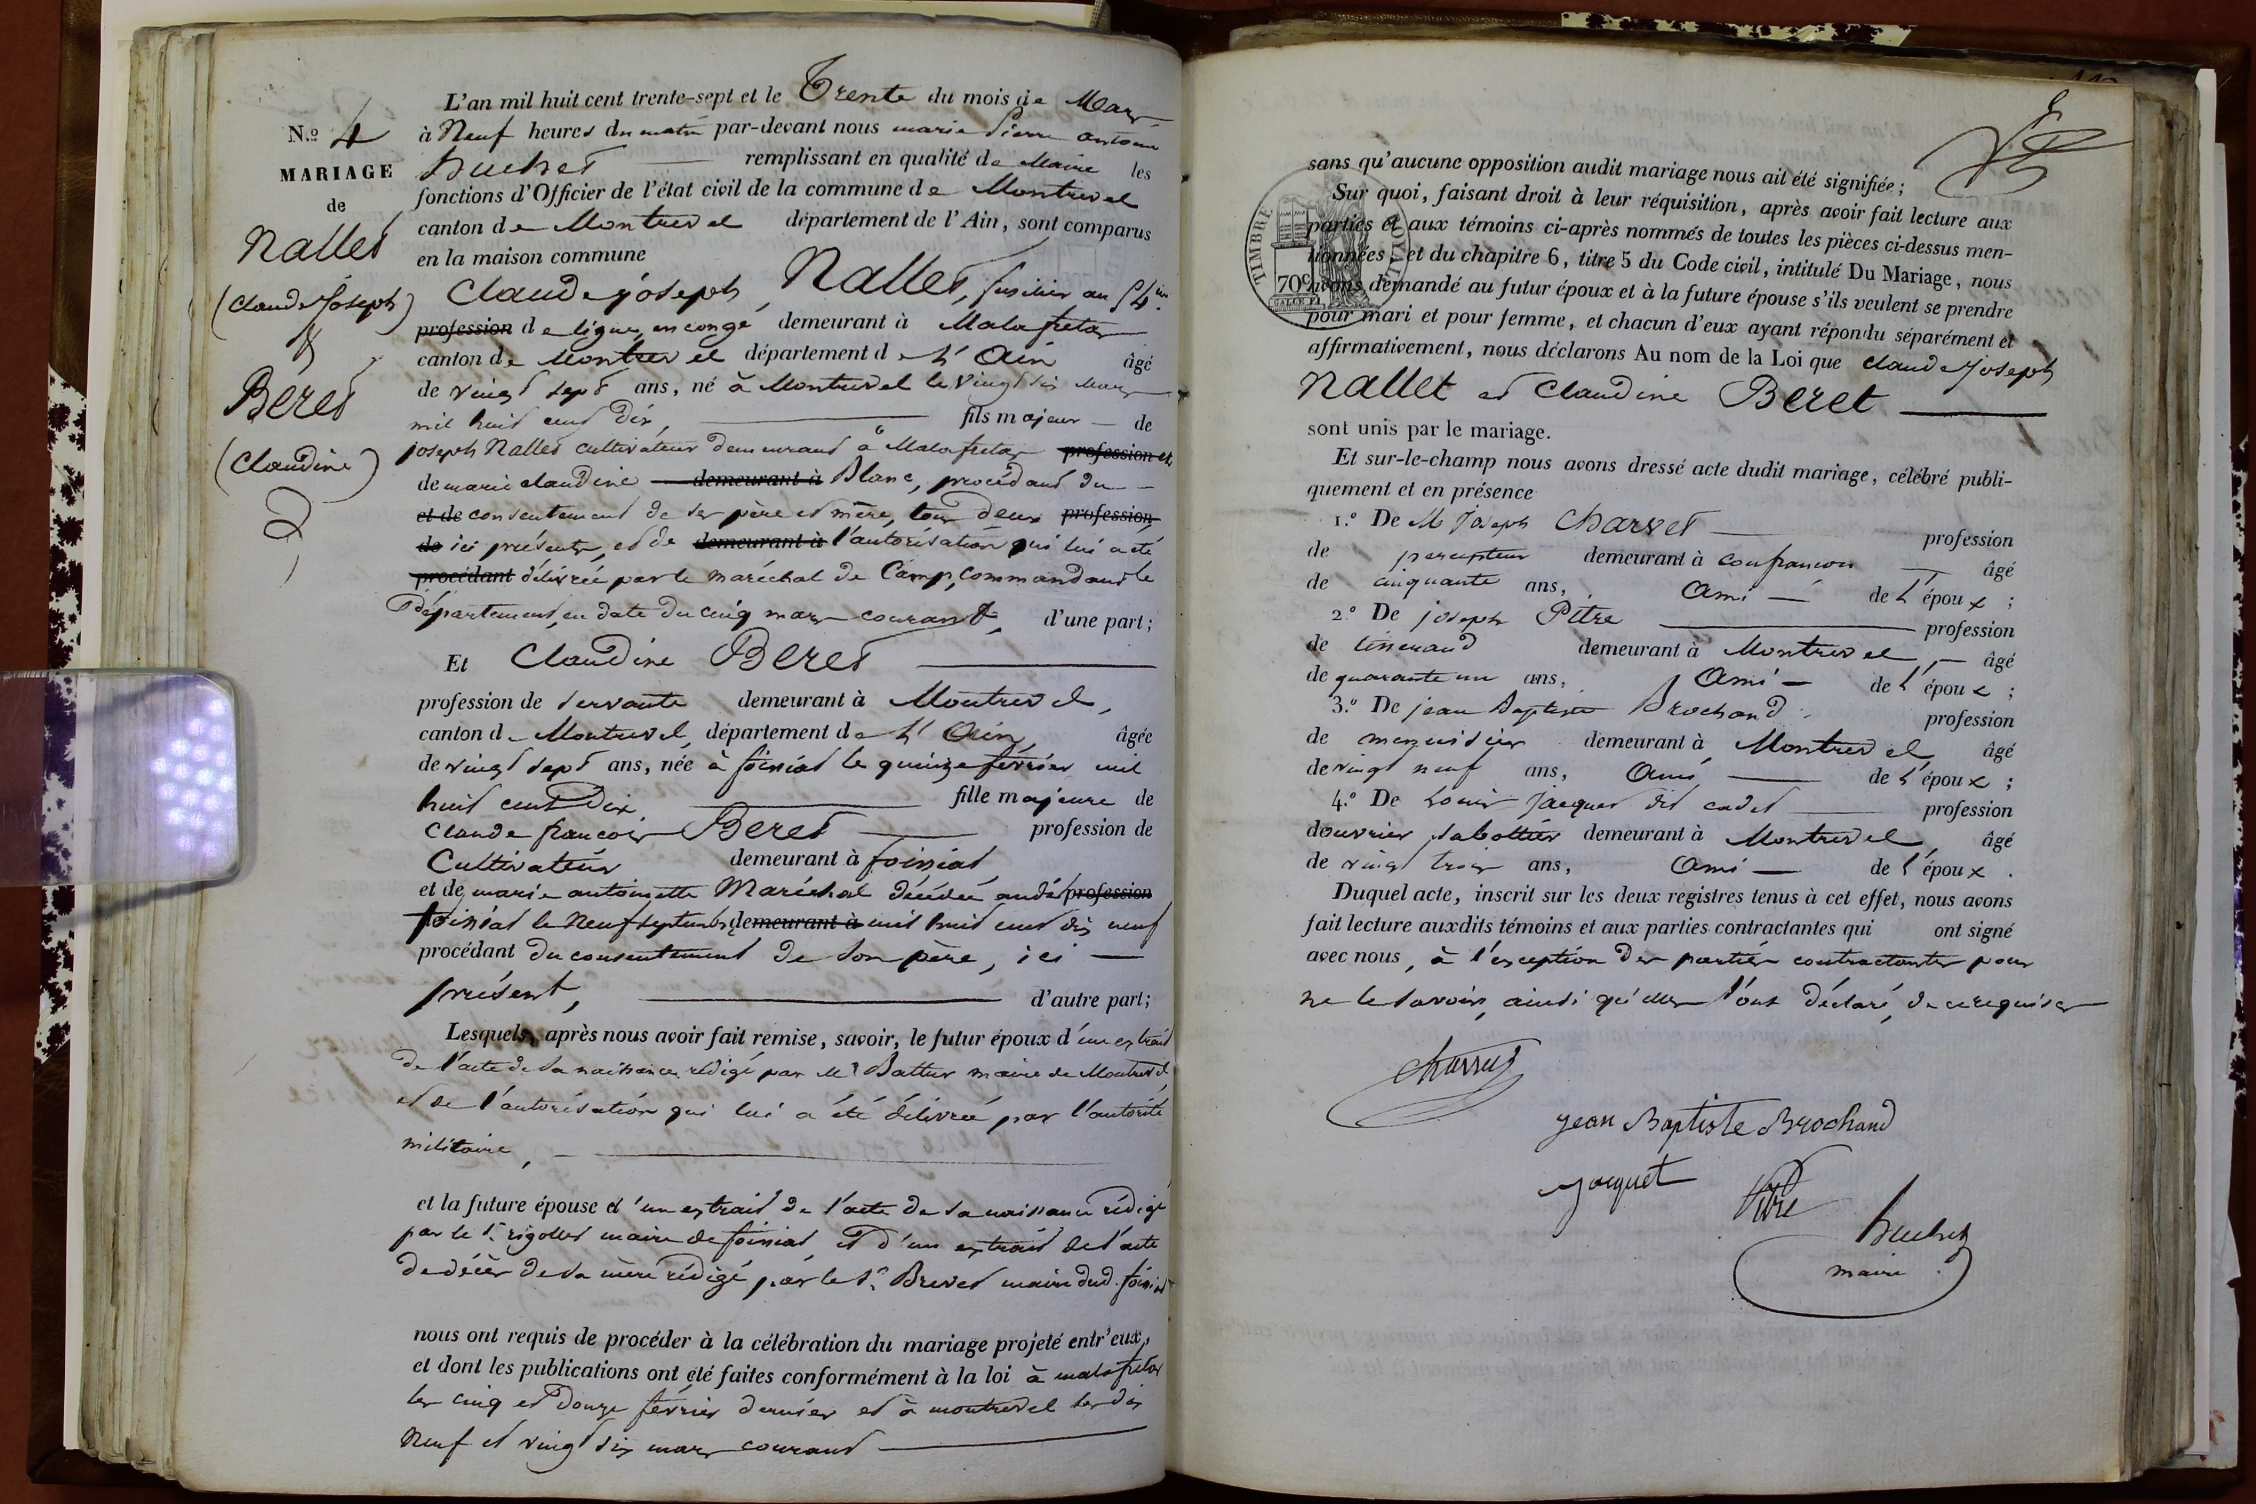 L'an mil huit cent trente-sept et le Trente du mois de Mars
N.º 4
MARIAGE
de
Nallet
(Claude Joseph)
&
Beret
(Claudine)
à Neuf heures du matin par-devant nous marie Pierre antoine
huchet remplissant en qualité de Maire les
fonctions d'Officier de l'état civil de la commune de Montrevel
canton de Montrevel département de l'Ain, sont comparus
en la maison commune
Claude joseph Nallet, fusilier au 54ème
profession de ligne, en congé demeurant à Malafretaz
canton de Montrevel département de l'Ain âgé
de vingt sept ans, né à Montrevel le vingt six mars
mil huit cent dix, fils majeur de
joseph Nallet cultivateur demeurant à Malafretaz profession et
de marie claudine demeurant à Blanc, procédant du
et de consentement de ses père et mère, tous deux profession
de ici présents, et de demeurant à l'autorisation qui lui a été
procédant délivrée par le maréchal de Camp, Commandant le
Département, en date du cinq mars courant, d'une part;
Et Claudine Beret
profession de servante demeurant à Montrevel,
canton de Montrevel, département de l'Ain âgée
de vingt sept ans, née à foissiat le quinze février mil
huit cent Dix fille majeure de
Claude françois Beret profession de
Cultivateur demeurant à foissiat
et de marie antoinette Maréchal décédée audit profession
foissiat le neuf septembre demeurant à mil huit cent dix neuf
procédant du consentement de son père, ici
présent, d'autre part;
Lesquels, après nous avoir fait remise, savoir, le futur époux d'un extrait
de l'acte de sa naissance rédigé par Mr Battur maire de Montrevel,
et de l'autorisation qui lui a été délivrée par l'autorité
militaire,
et la future épouse d'un extrait de l'acte de sa naissance rédigé
par le Sr. rigollet maire de foissiat, et d'un extrait de l'acte
de décès de sa mère rédigé par le Sr. Brevet maire dud. foissiat
nous ont requis de procéder à la célébration du mariage projeté entr'eux,
et dont les publications ont été faites conformément à la loi à malafretaz
les cinq et douze février dernier et à montrevel les dix
neuf et vingt six mars courant
sans qu'aucune opposition audit mariage nous ait été signifiée;
Sur quoi, faisant droit à leur réquisition, après avoir fait lecture aux
parties et aux témoins ci-après nommés de toutes les pièces ci-dessus men-
tionnées, et du chapitre 6, titre 5 du Code civil, intitulé Du Mariage, nous
avons demandé au futur époux et à la future épouse s'ils veulent se prendre
pour mari et pour femme, et chacun d'eux ayant répondu séparément et
affirmativement, nous déclarons Au nom de la Loi que claude Joseph
Nallet et Claudine Beret
TIMBRE ROYAL
70c
sont unis par le mariage.
Et sur-le-champ nous avons dressé acte dudit mariage, célébré publi-
quement et en présence
1.º De M Joseph Charvet profession
de percepteur demeurant à confrançon âgé
de cinquante ans, Ami de l'époux;
2.º De joseph Pitre profession
de tisserand demeurant à Montrevel, âgé
de quarante un ans, Ami de l'époux;
3.º De jean Baptiste Brochand profession
de menuisier demeurant à Montrevel âgé
de vingt neuf ans, Ami de l'époux;
4.º De Louis Jacquet dit cadet profession
d'ouvrier sabottier demeurant à Montrevel, âgé
de vingt trois ans, Ami de l'époux.
Duquel acte, inscrit sur les deux registres tenus à cet effet, nous avons
fait lecture auxdits témoins et aux parties contractantes qui ont signé
avec nous, à l'exception des parties contractantes pour
ne le savoir, ainsi qu'elles l'ont déclaré, de ce requises
Charvet
jean Baptiste Brochand
Jacquet
Pitre
huchet
maire